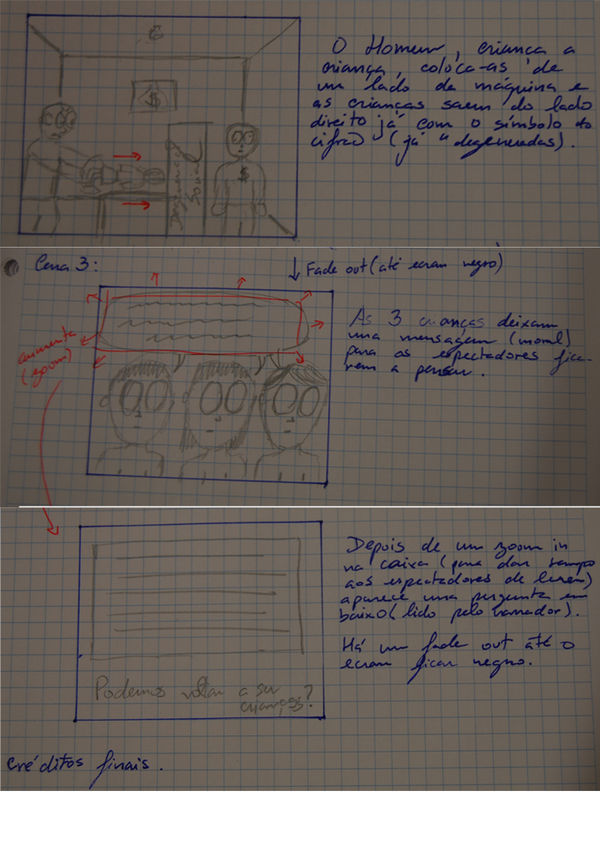 $
$
Desigualdade Social
O Homem, criança a
criança, coloca-as de
um lado da máquina e
as crianças saem do lado
direito já com o símbolo do
cifrão (já "degeneradas).
Cena 3:
↓ Fade out (até ecran negro)
aumenta
(zoom)
As 3 crianças deixam
uma mensagem (moral)
para os espectadores fica-
rem a pensar.
Depois de um zoom in
na caixa (para dar tempo
aos espectadores de lerem)
aparece uma pergunta em
baixo (lido pelo narrador).
Há um fade out até o
ecran ficar negro.
Podemos voltar a ser
crianças?
créditos finais.